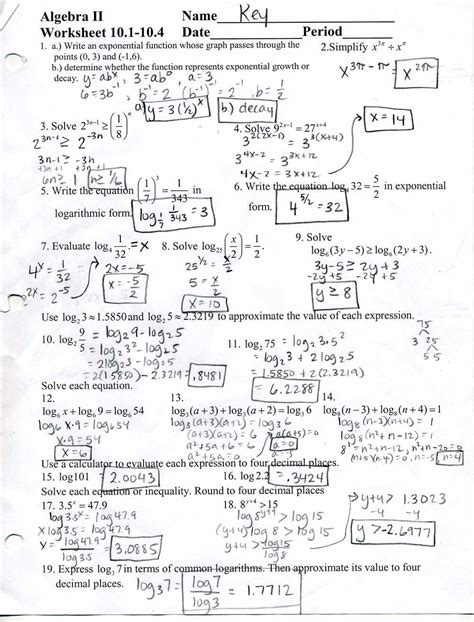 Algebra II Name Key
Worksheet 10.1-10.4 Date Period
1. a.) Write an exponential function whose graph passes through the points (0, 3) and (-1,6).
b.) determine whether the function represents exponential growth or decay. y=abˣ, 3=ab⁰, a=3
6=3b⁻¹ b⁻¹=2 (b⁻¹)⁻¹=2⁻¹, b=1/2
y=3(1/2)ˣ b.) decay
2.Simplify x^(3π) ÷ x^π
x^(3π-π) = x^(2π)
3. Solve 2^(3n-1) ≥ (1/8)^n
2^(3n-1) ≥ 2^(-3n)
3n-1 ≥ -3n
+3n +1 +3n +1
6n ≥ 1 n ≥ 1/6
4. Solve 9^(2x-1) = 27^(x+4)
3^(2(2x-1)) = 3^(3(x+4))
3^(4x-2) = 3^(3x+12)
4x-2 = 3x+12
x=14
5. Write the equation (1/7)³ = 1/343 in logarithmic form.
log_(1/7) 1/343 = 3
6. Write the equation log₄ 32 = 5/2 in exponential form.
4^(5/2) = 32
7. Evaluate log₄ 1/32. = x
4ˣ = 1/32
2x = 2⁻⁵
2x=-5
x = -5/2
8. Solve log₂₅ (x/2) = 1/2.
25^(1/2) = x/2
5 = x/2
x=10
9. Solve
log₆(3y − 5) ≥ log₆(2y + 3).
3y-5 ≥ 2y+3
-2y +5 -2y +5
y ≥ 8
Use log₂ 3 ≈ 1.5850and log₂ 5 ≈ 2.3219 to approximate the value of each expression.
10. log₂ 9/5 = log₂9-log₂5
= log₂3²-log₂5
= 2log₂3-log₂5
= 2(1.5850)-2.3219 = .8481
11. log₂ 75 = log₂3·5²
= log₂3 + 2log₂5
= 1.5850 + 2(2.3219)
= 6.2288
75
3 25
5 5
Solve each equation.
12.
log₆ x + log₆ 9 = log₆ 54
log₆ x·9 = log₆54
x·9=54
x=6
13.
log₃(a + 3) + log₃(a + 2) = log₃ 6
log₃(a+3)(a+2) = log₃6
(a+3)(a+2) = 6
a²+5a+6=6
a²+5a=0
a(a+5)=0
a=0
14.
log₈(n − 3) + log₈(n + 4) = 1
log₈(n-3)(n+4) = 1
log₈(n²+n-12)=1
8¹=n²+n-12, n²+n-20=0
n=-5 n=4
Use a calculator to evaluate each expression to four decimal places.
15. log101 = 2.0043
16. log2.2 = .3424
Solve each equation or inequality. Round to four decimal places
17. 3.5ˣ = 47.9
log 3.5ˣ = log 47.9
x log 3.5 = log 47.9
x = log 47.9/log 3.5 = 3.0885
18. 8^(y+4) > 15
log 8^(y+4) > log 15
(y+4) log 8 > log 15
y+4 > log15/log8
y+4 > 1.3023
-4 -4
y > -2.6977
19. Express log₃ 7 in terms of common logarithms. Then approximate its value to four decimal places.
log₃7 = log7/log3 = 1.7712